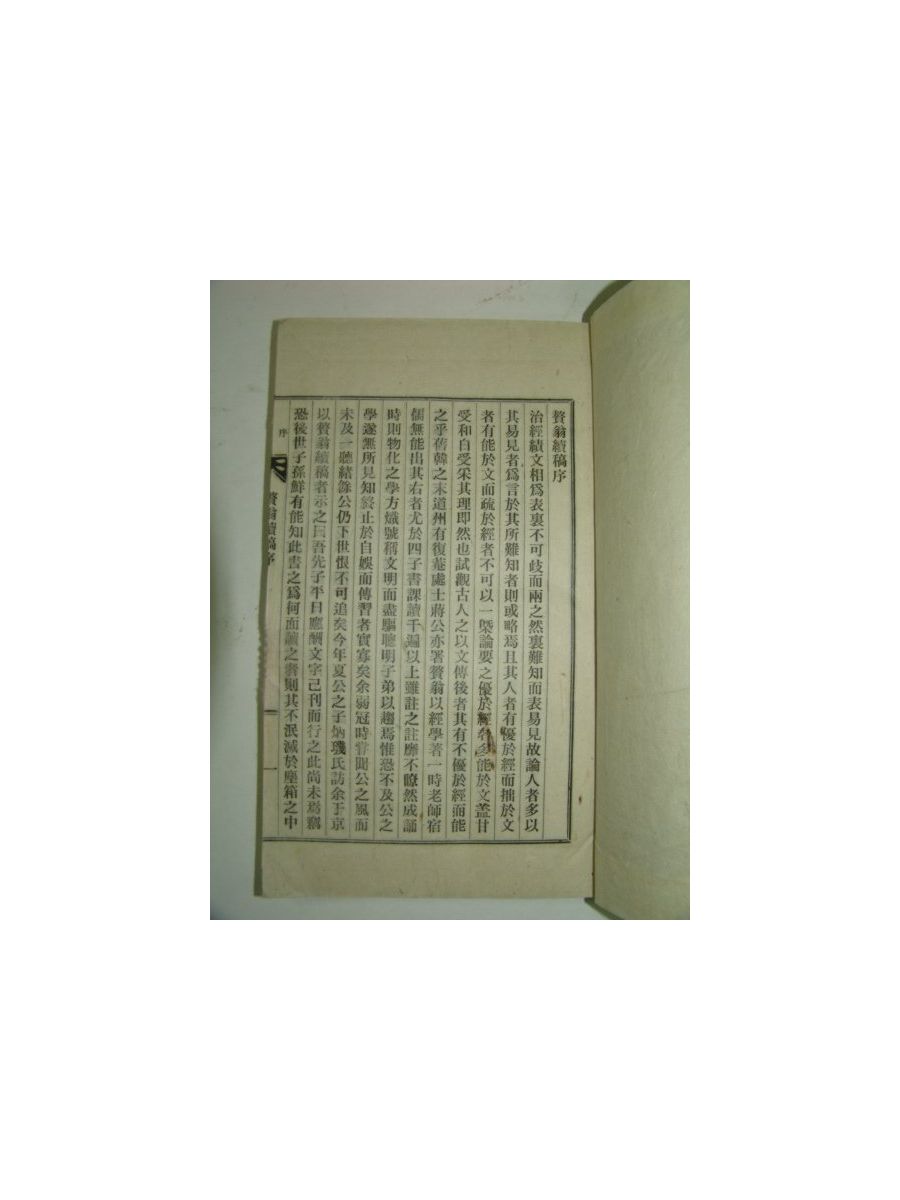 贅翁續稿序
治經績文相爲表裏不可歧而兩之然裏難知而表易見故論人者多以
其易見者爲言於其所難知者則或略焉且其人者有優於經而拙於文
者有能於文而疏於經者不可以一槩論要之優於經者多能於文盖甘
受和白受采其理即然也試觀古人之以文傳後者其有不優於經而能
之乎舊韓之末道州有復菴處士蔣公亦署贅翁以經學著一時老師宿
儒無能出其右者尤於四子書課讀千遍以上雖註之註靡不瞭然成誦
時則物化之學方熾號稱文明而盡驅聰明子弟以趨焉惟恐不及公之
學遂無所見知終止於自娛而傳習者實寡矣余弱冠時嘗聞公之風而
未及一聽緖餘公仍下世恨不可追矣今年夏公之子炳璣氏訪余于京
以贅翁續稿者示之曰吾先子平日應酬文字已刊而行之此尚未焉竊
恐後世子孫鮮有能知此書之爲何而讀之者則其不泯滅於塵箱之中
序
贅翁續稿序
一